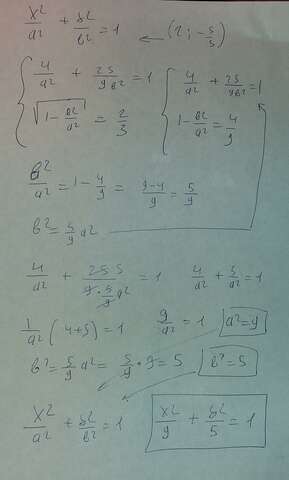 x²/a² + b²/b² = 1 ← (2; -5/3)
{ 4/a² + 25/9b² = 1 { 4/a² + 25/9b² = 1
√1 - b²/a² = 2/3 1 - b²/a² = 4/9
b²/a² = 1 - 4/9 = 9-4/9 = 5/9
b² = 5/9 a²
4/a² + 25 5/9·5/9 a² = 1 4/a² + 5/a² = 1
1/a² (4+5) = 1 9/a² = 1 a² = 9
b² = 5/9 a² = 5/9 · 9 = 5 b² = 5
x²/a² + b²/b² = 1 x²/9 + b²/5 = 1